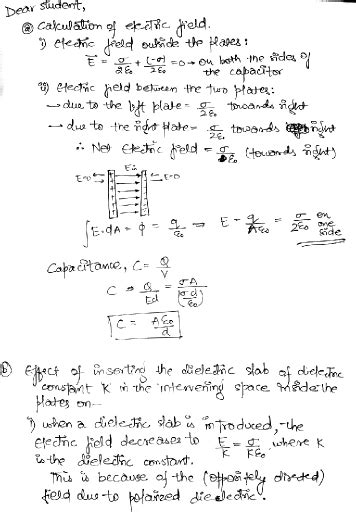 Dear student,
ⓐ Calculation of electric field.
i) Electric field outside the plates:
E = σ/2ε₀ + (-σ)/2ε₀ = 0 → on both the sides of
the capacitor
ii) Electric field between the two plates:
→ due to the left plate = σ/2ε₀ towards right
→ due to the right plate = σ/2ε₀ towards right
∴ Net Electric field = σ/ε₀ (towards right)
E in
E=0 E=0
∫E·dA = φ = q/ε₀ ⇒ E = q/Aε₀ = σ/2ε₀ on one side
Capacitance, C = Q/V
C = Q/Ed = σA/(σd/ε₀)
C = Aε₀/d
ⓑ Effect of inserting the dielectric slab of dielectric
constant K in the intervening space inside the
plates on—
i) when a dielectric slab is introduced, the
electric field decreases to E/K = σ/Kε₀ where K
is the dielectric constant.
This is because of the (oppositely directed)
field due to polarized dielectric.